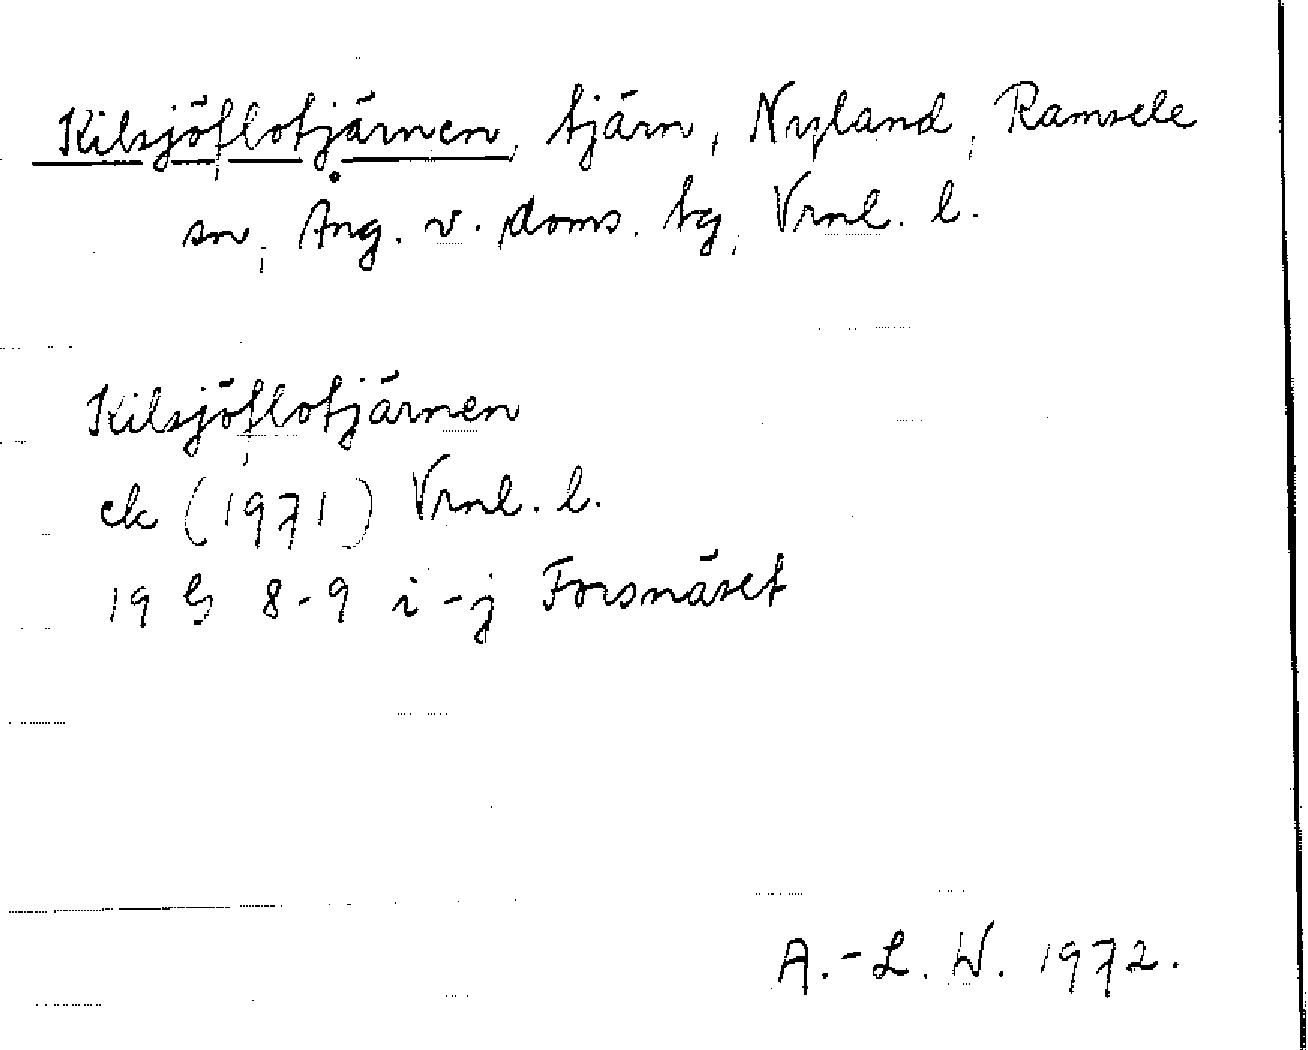 Kilsjöflotjärnen, tjärn, Nyland, Ramsele
sn, Ång. v. doms. tg, Vrnl. l.
Kilsjöflotjärnen
ek (1971) Vrnl. l.
19 G 8-9 i-j Forsnäset
A.-L. W. 1972.